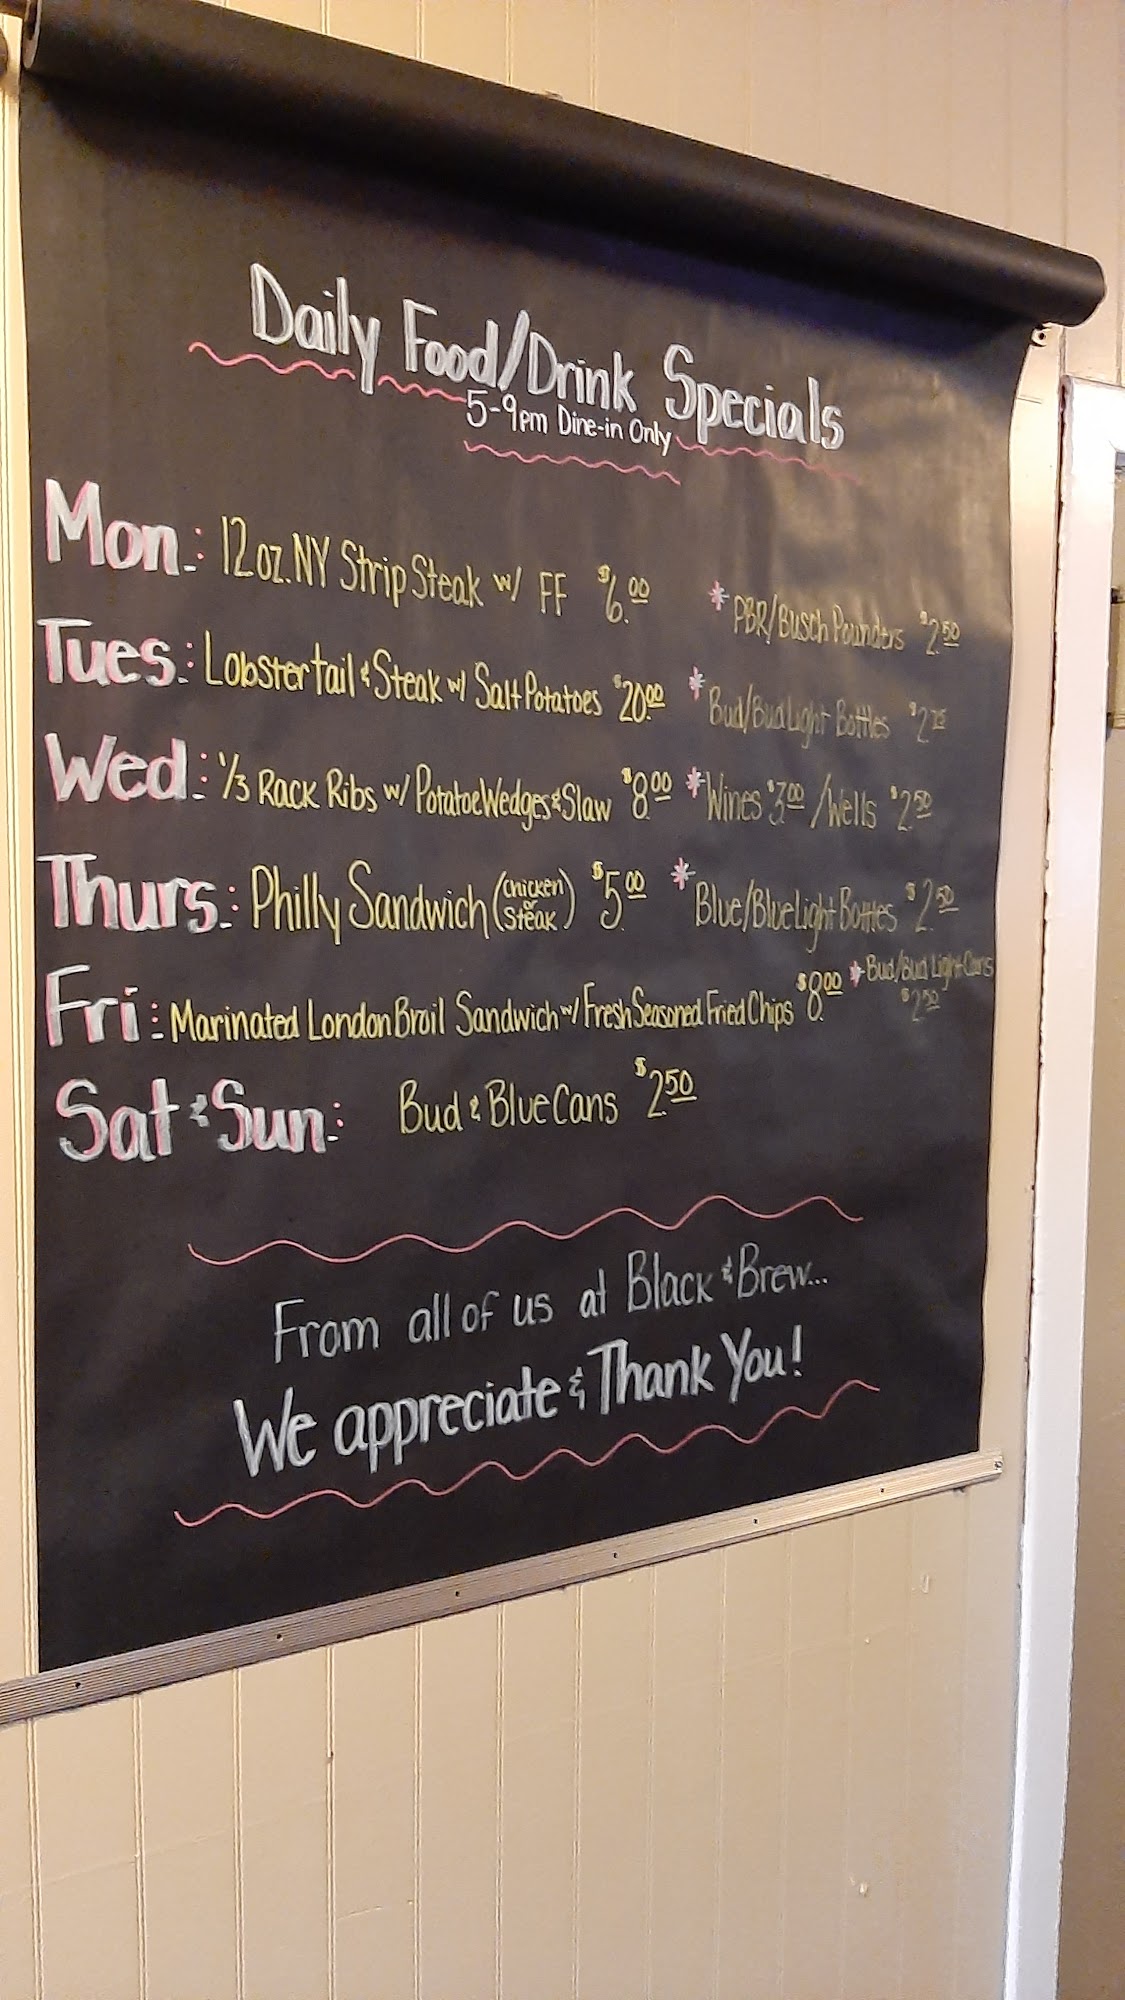 Daily Food/Drink Specials
5-9pm Dine-in Only
Mon.: 12 oz. NY Strip Steak w/ FF $6.00 * PBR/Busch Pounders $2.50
Tues.: Lobster tail & Steak w/ Salt Potatoes $20.00 * Bud/Bud Light Bottles $2.75
Wed.: 1/3 Rack Ribs w/ Potatoe Wedges & Slaw $8.00 * Wines $3.00 / Wells $2.50
Thurs.: Philly Sandwich (chicken or steak) $5.00 * Blue/Blue Light Bottles $2.50
Fri.: Marinated London Broil Sandwich w/ Fresh Seasoned Fried Chips $8.00 * Bud/Bud Light Cans $2.50
Sat & Sun.: Bud & Blue Cans $2.50
From all of us at Black & Brew...
We appreciate & Thank You!